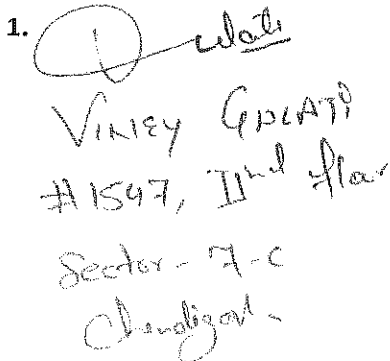 1.
VINEY GULATI
#1547, IInd floor
Sector - 7-C
Chandigarh -